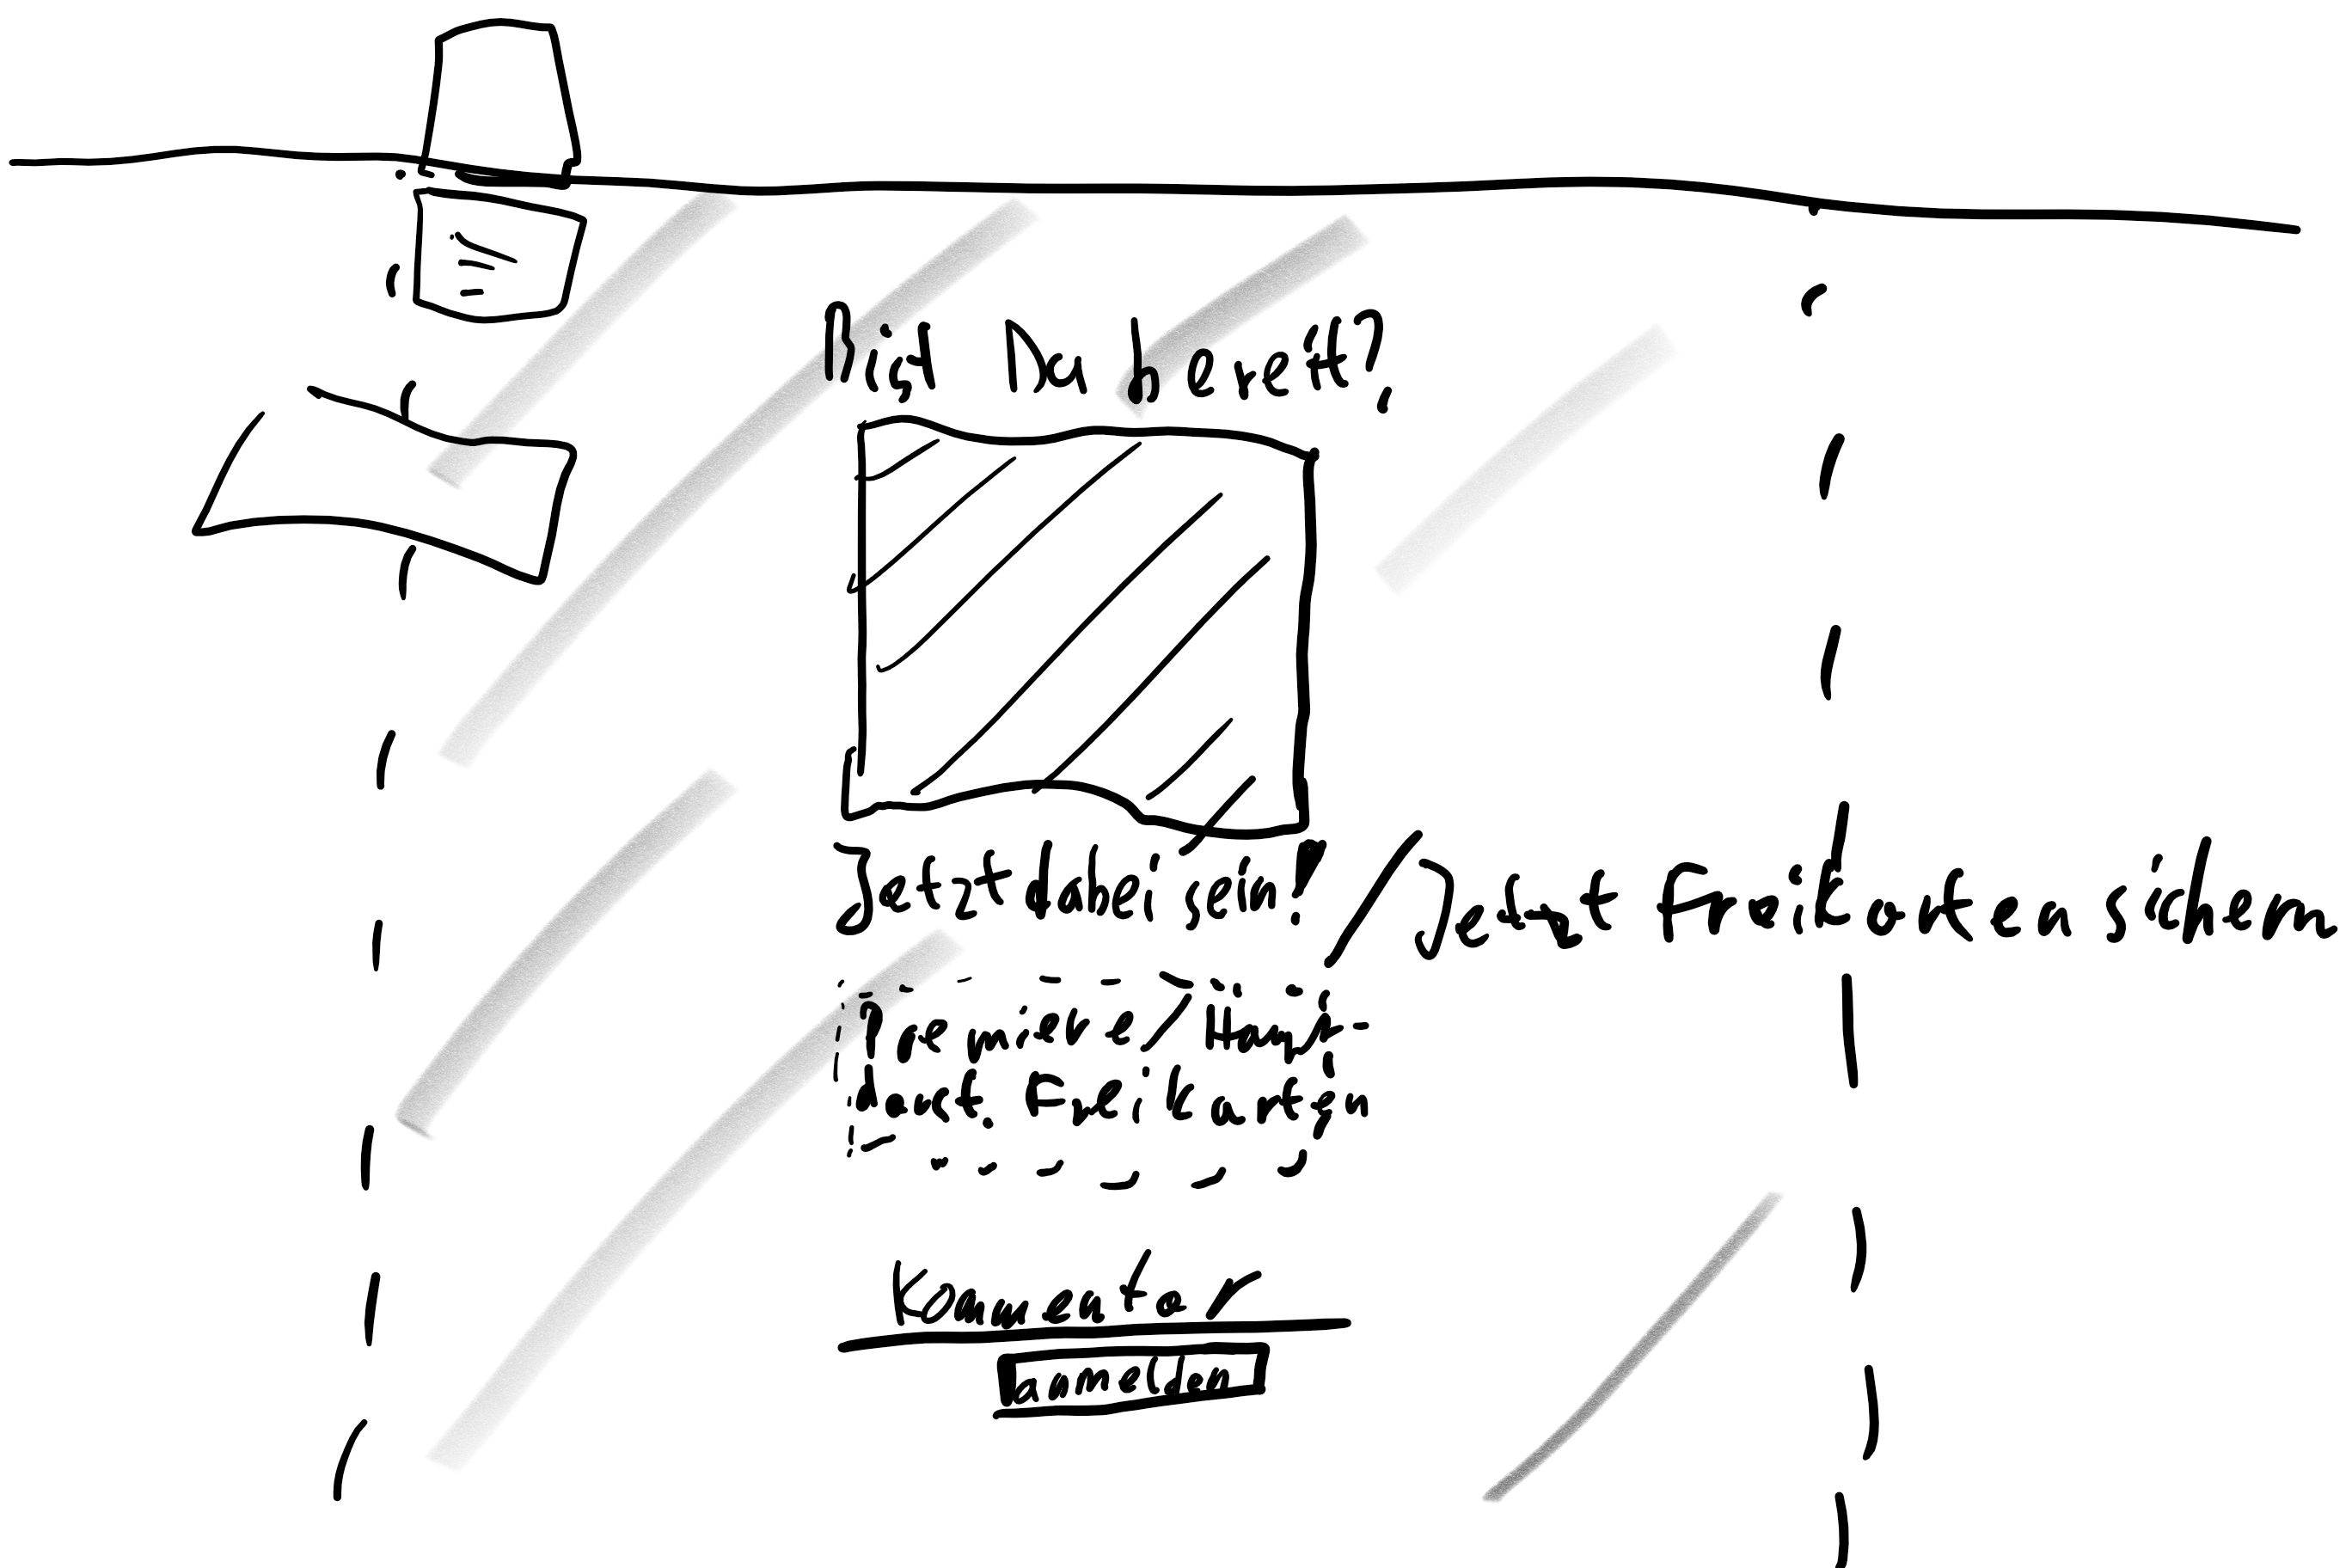 Bist Du bereit?
Jetzt dabei sein! / Jetzt Freikarten sichern
Premiere/Haupt-
darst. Freikarten
Kommentar
anmelden